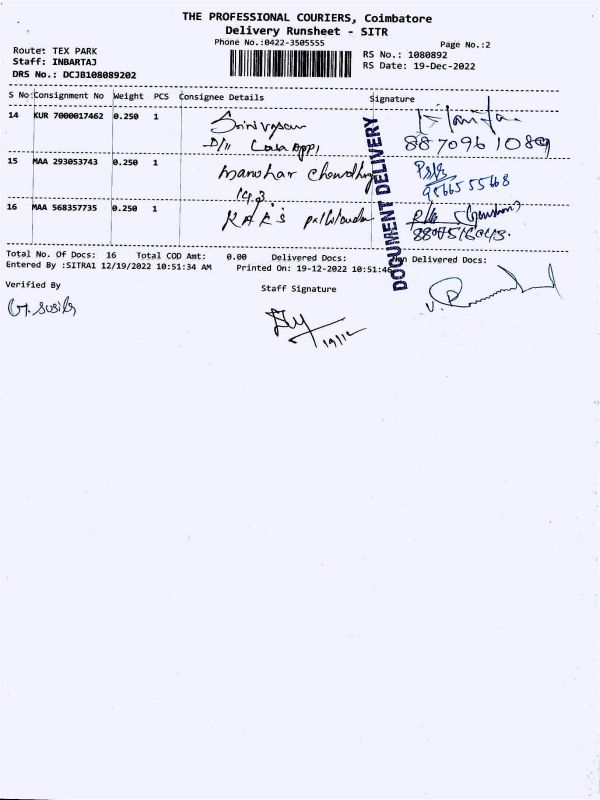 THE PROFESSIONAL COURIERS, Coimbatore
Delivery Runsheet - SITR
Phone No.:0422-3505555
Page No.:2
Route: TEX PARK
RS No.: 1080892
Staff: INBARTAJ
RS Date: 19-Dec-2022
DRS No.: DCJB108089202
S No Consignment No Weight PCS Consignee Details Signature
14 KUR 7000017462 0.250 1 Srinivasan
8870961089
15 MAA 293053743 0.250 1 Manohar Chowdhry
9566555668
16 MAA 568357735 0.250 1 K A R S
DOCUMENT DELIVERY
Total No. Of Docs: 16 Total COD Amt: 0.00 Delivered Docs: Non Delivered Docs:
Entered By :SITRA1 12/19/2022 10:51:34 AM Printed On: 19-12-2022 10:51:46
Verified By
Staff Signature
G. Susila
19/12